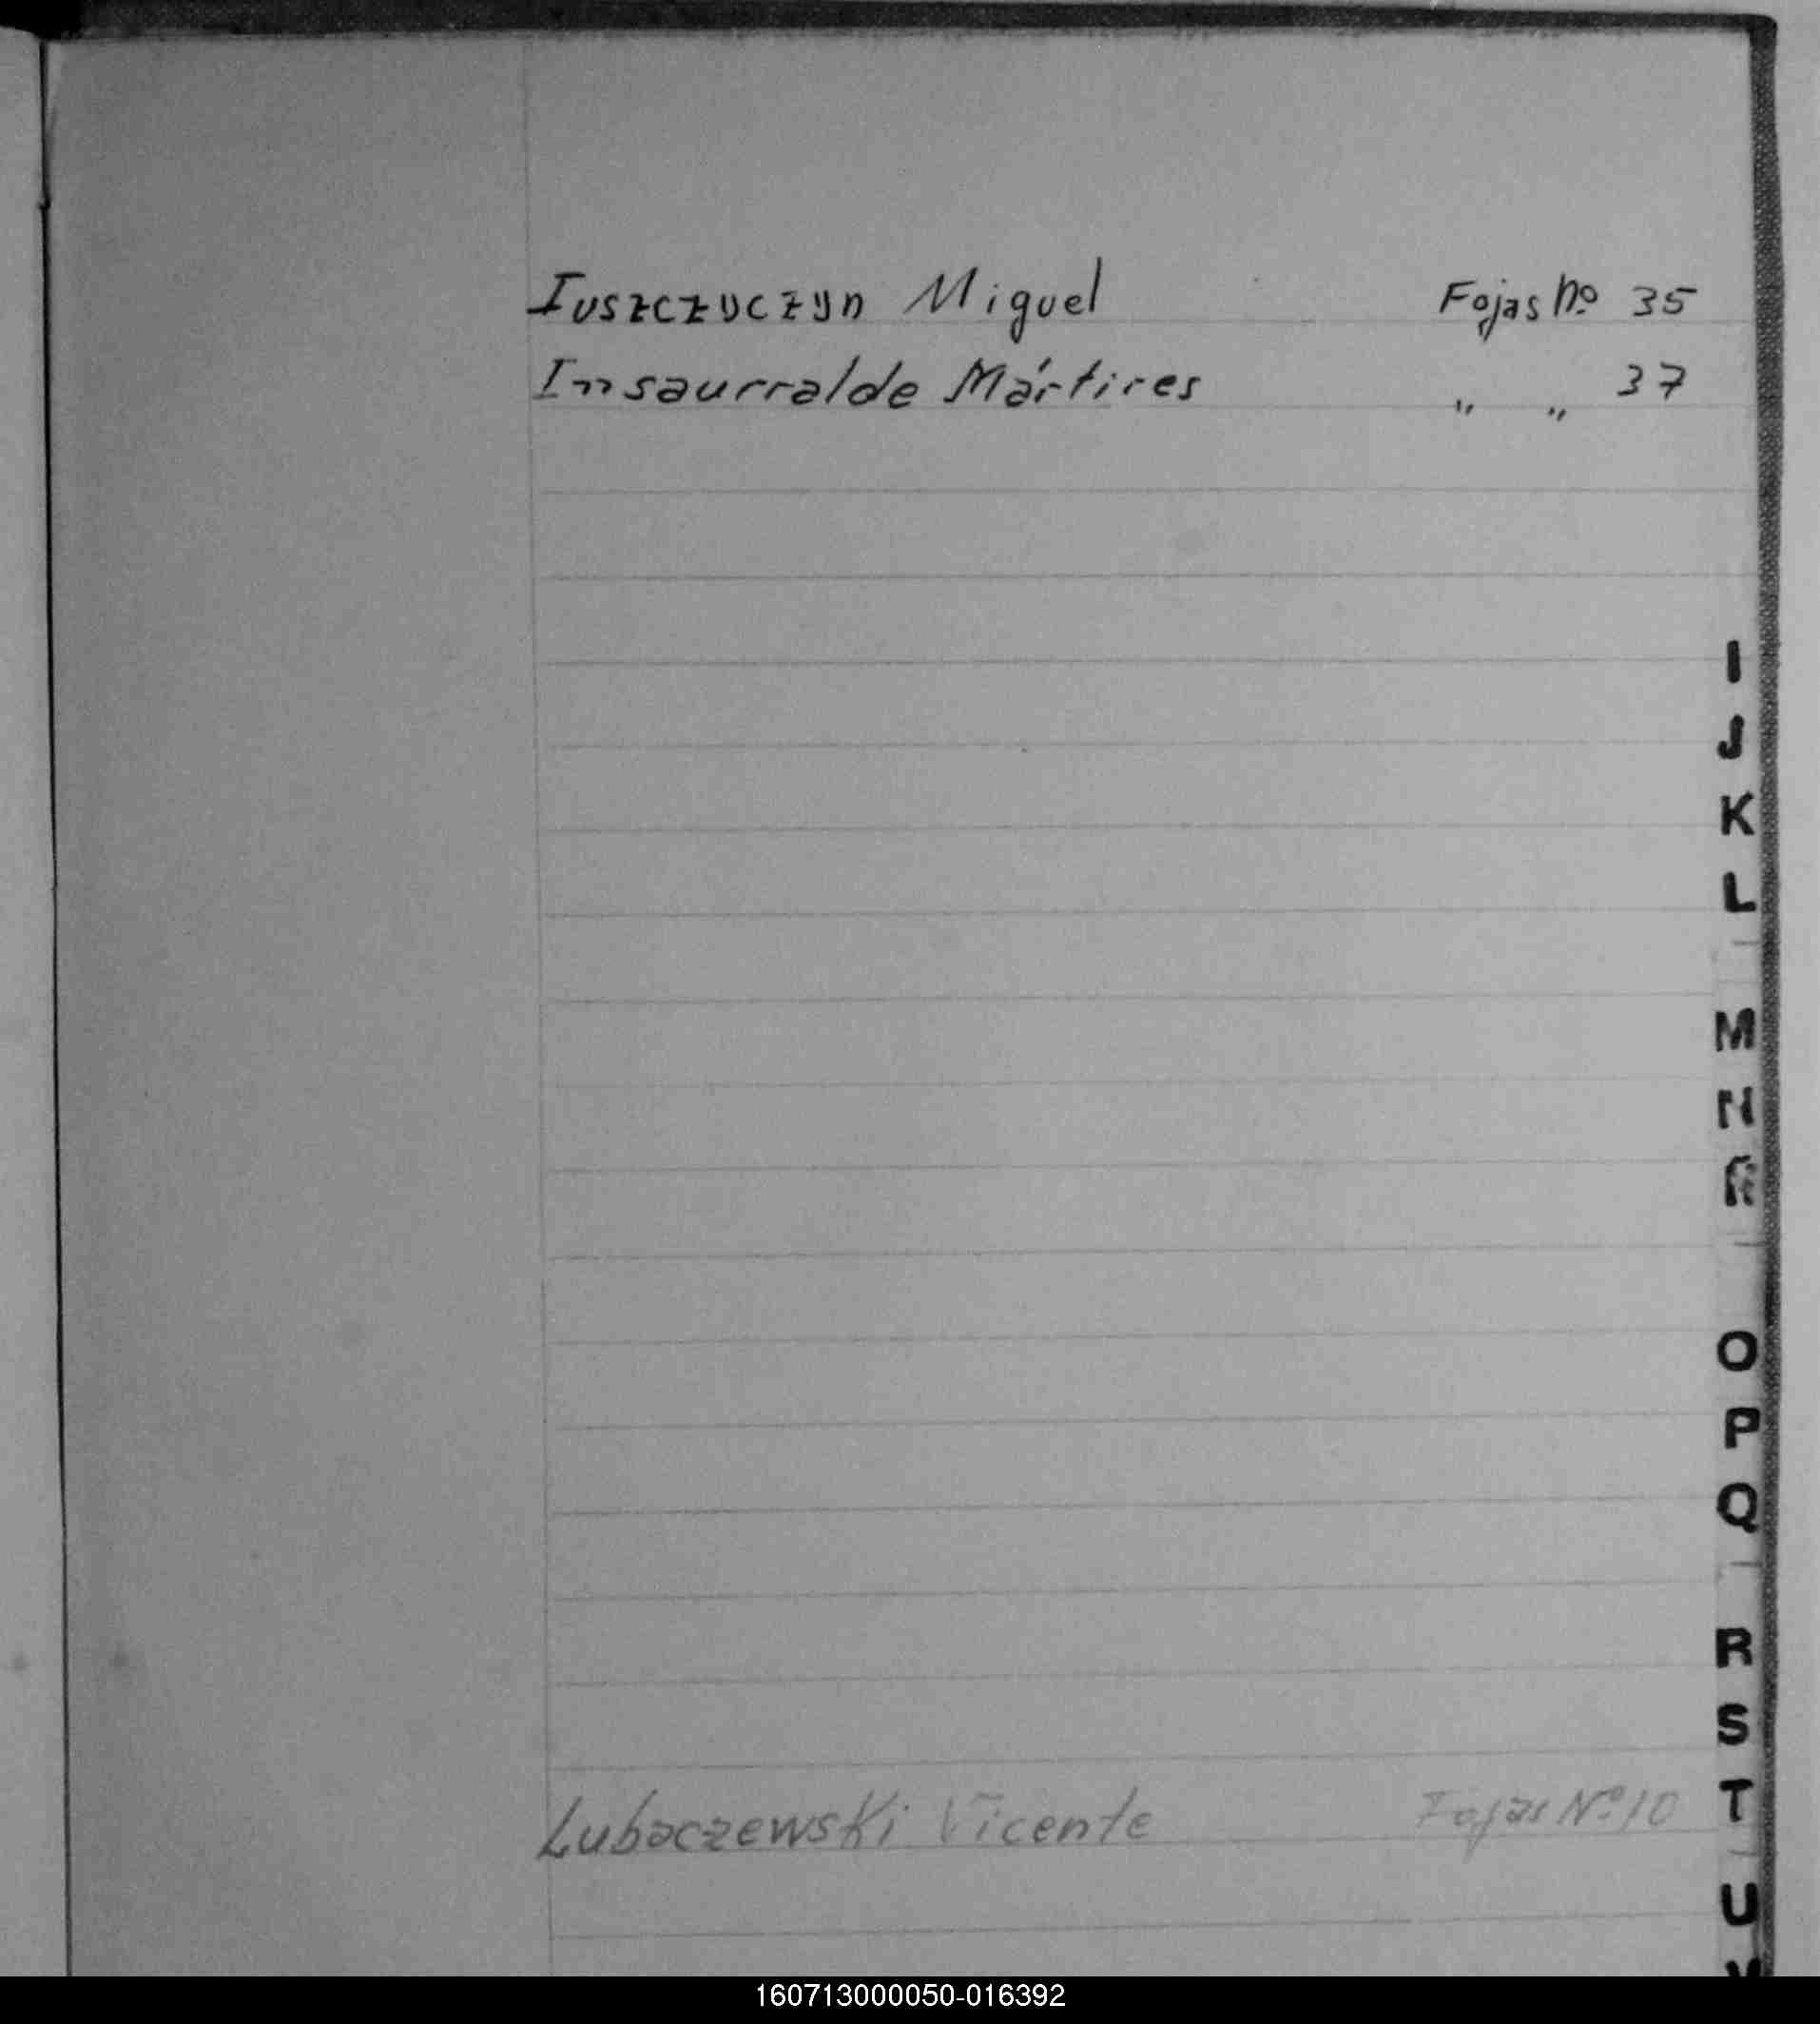 Iuszczyczyn Miguel Fojas Nº 35
Insaurralde Mártires " " 37
I
J
K
L
M
N
Ñ
O
P
Q
R
S
Lubaczewski Vicente Fojas Nº 10
T
U
V
160713000050-016392